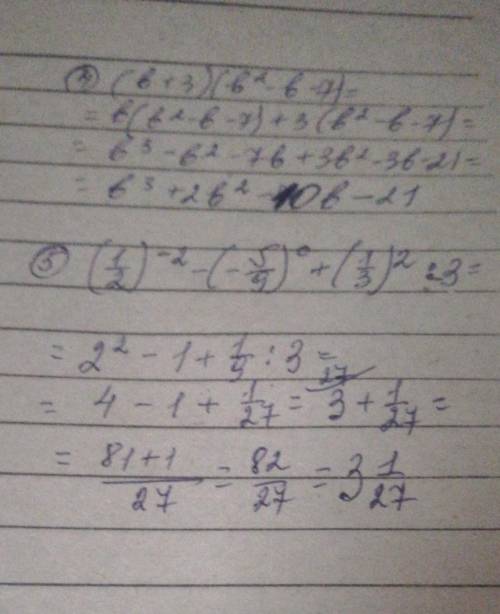 ④ (b+3)(b²-b-7)=
= b(b²-b-7)+3(b²-b-7)=
= b³-b²-7b+3b²-3b-21=
= b³+2b²-10b-21
⑤ (1/2)⁻²-(-5/9)⁰+(1/3)²:3=
= 2²-1+1/9:3=
= 4-1+1/27= 27/3+1/27=
= 81+1/27=82/27=3 1/27